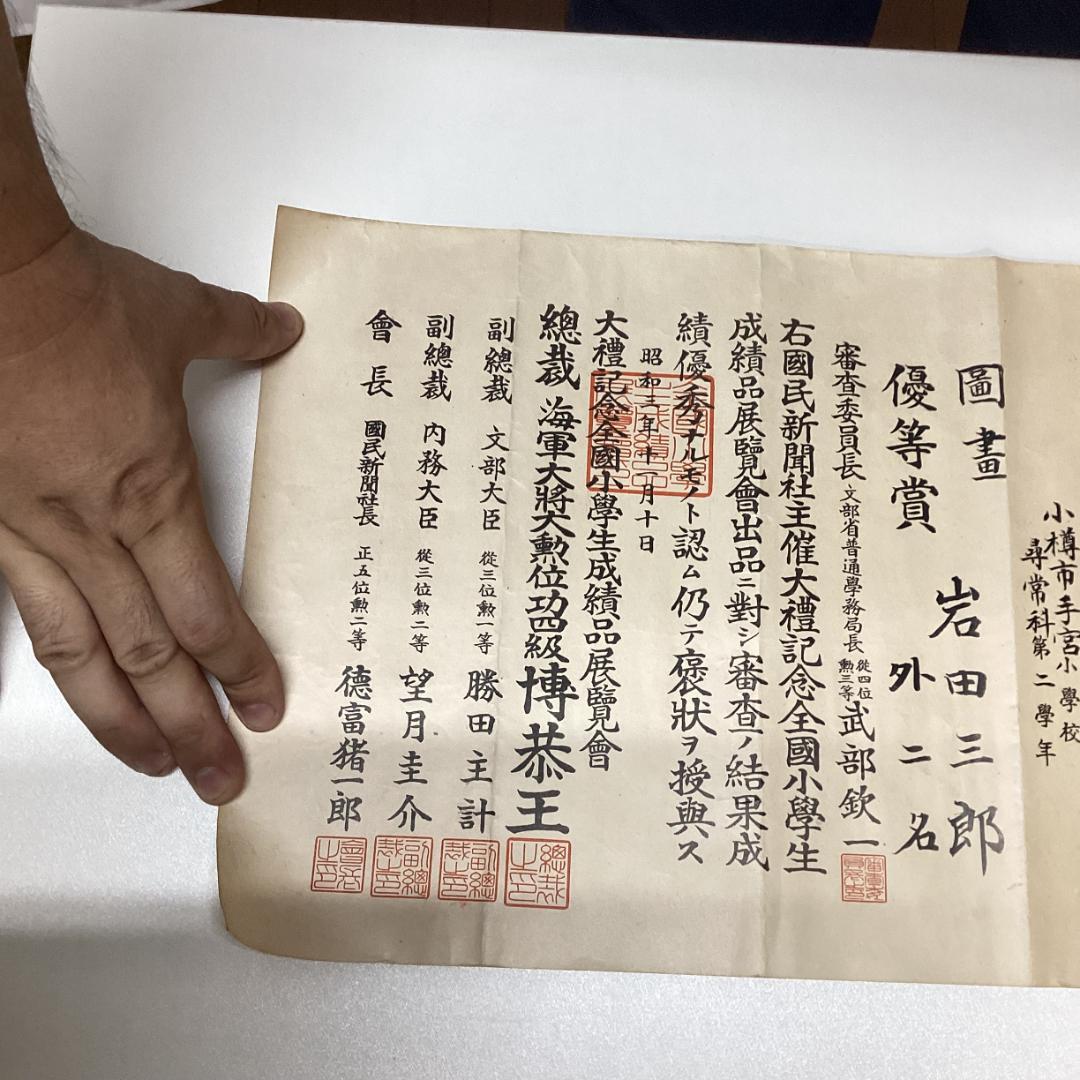 小樽市手宮小學校
尋常科第二學年
圖畫
岩田三郎
優等賞
外二名
審査委員長 文部省普通學務局長 從四位勲三等 武部欽一
右國民新聞社主催大禮記念全國小學生
成績品展覽會出品ニ對シ審査ノ結果成
績優秀ナルモノト認ム仍テ褒狀ヲ授與ス
昭和三年十一月十日
大禮記念全國小學生成績品展覽會
總裁 海軍大將大勲位功四級博恭王
總裁之印
副總裁 文部大臣 從三位勲一等 勝田主計
副總裁之印
副總裁 内務大臣 從三位勲二等 望月圭介
副總裁之印
會長 國民新聞社長 正五位勲二等 德富猪一郎
會長之印